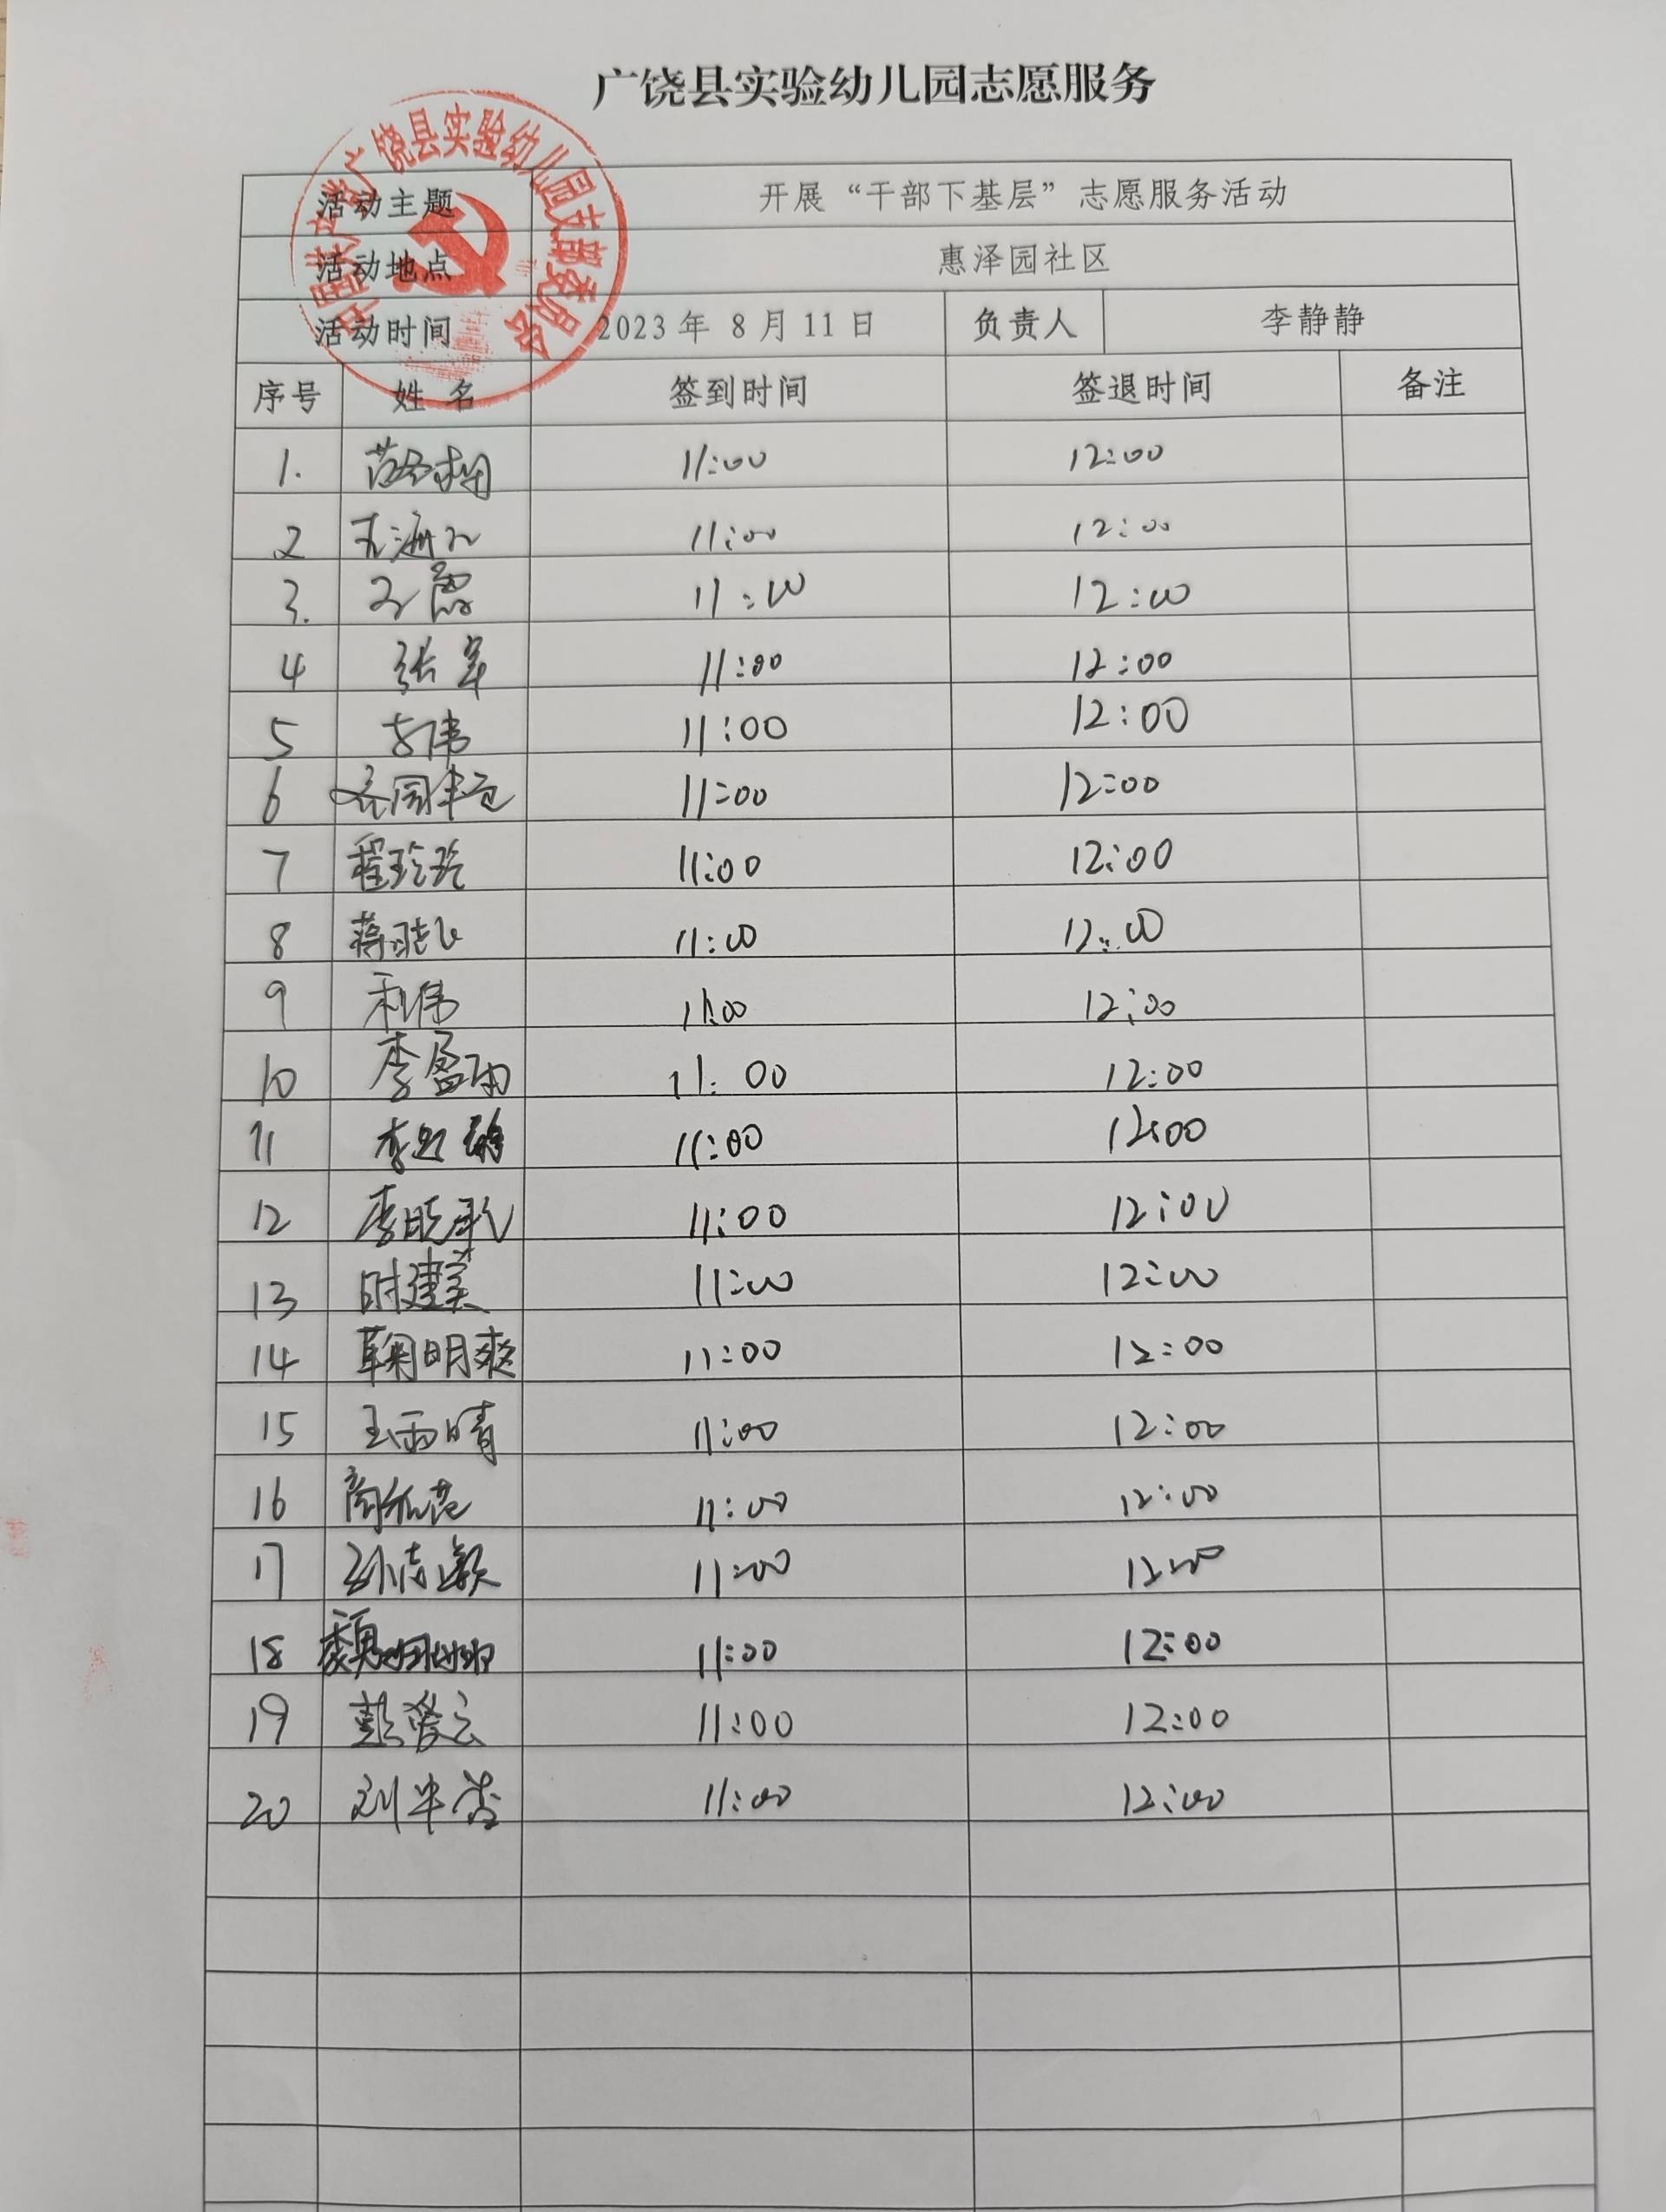 广饶县实验幼儿园志愿服务
中国共产党广饶县实验幼儿园支部委员会
活动主题 开展“干部下基层”志愿服务活动
活动地点 惠泽园社区
活动时间 2023年 8月11日 负责人 李静静
序号 姓 名 签到时间 签退时间 备注
1. 11:00 12:00
2 11:00 12:00
3. 11:00 12:00
4 张军 11:00 12:00
5 11:00 12:00
6 11:00 12:00
7 程玲玲 11:00 12:00
8 11:00 12:00
9 11:00 12:00
10 李盈雨 11:00 12:00
11 11:00 12:00
12 11:00 12:00
13 时建美 11:00 12:00
14 鞠明爽 11:00 12:00
15 王雨晴 11:00 12:00
16 11:00 12:00
17 11:00 12:00
18 11:00 12:00
19 彭爱云 11:00 12:00
20 11:00 12:00